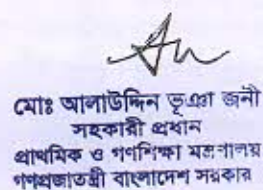 মোঃ আলাউদ্দিন ভূঞা জনী
সহকারী প্রধান
প্রাথমিক ও গণশিক্ষা মন্ত্রণালয়
গণপ্রজাতন্ত্রী বাংলাদেশ সরকার